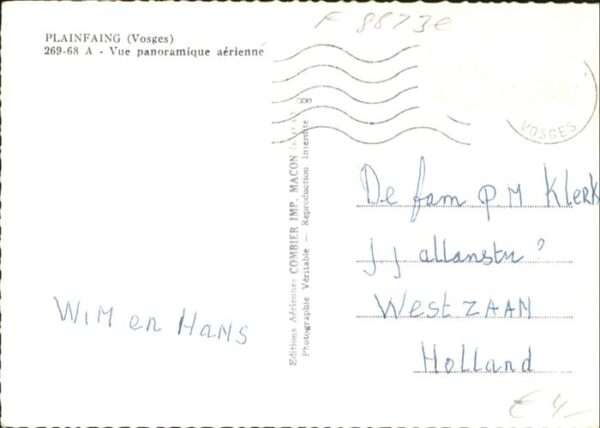 F 8873e
PLAINFAING (Vosges)
269-68 A - Vue panoramique aérienne
VOSGES
Editions Aériennes COMBIER IMP. MACON
Photographie Véritable - Reproduction Interdite
De fam P M Klerk
J J allanstr
WestZAAN
Holland
WIM en HANS
€ 4,-